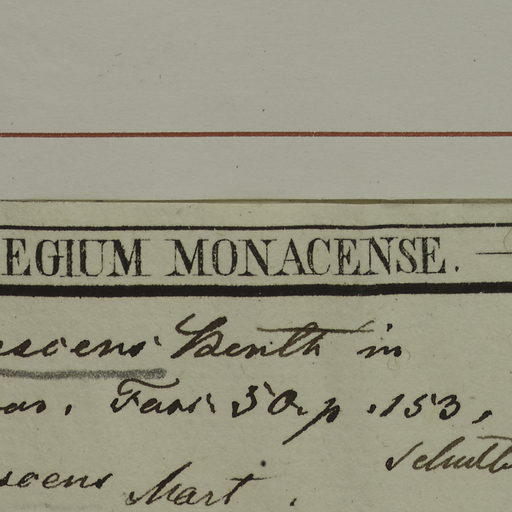 EGIUM MONACENSE. —
escens Benth in
as. Fasc. 50 p. 153,
scens Mart.